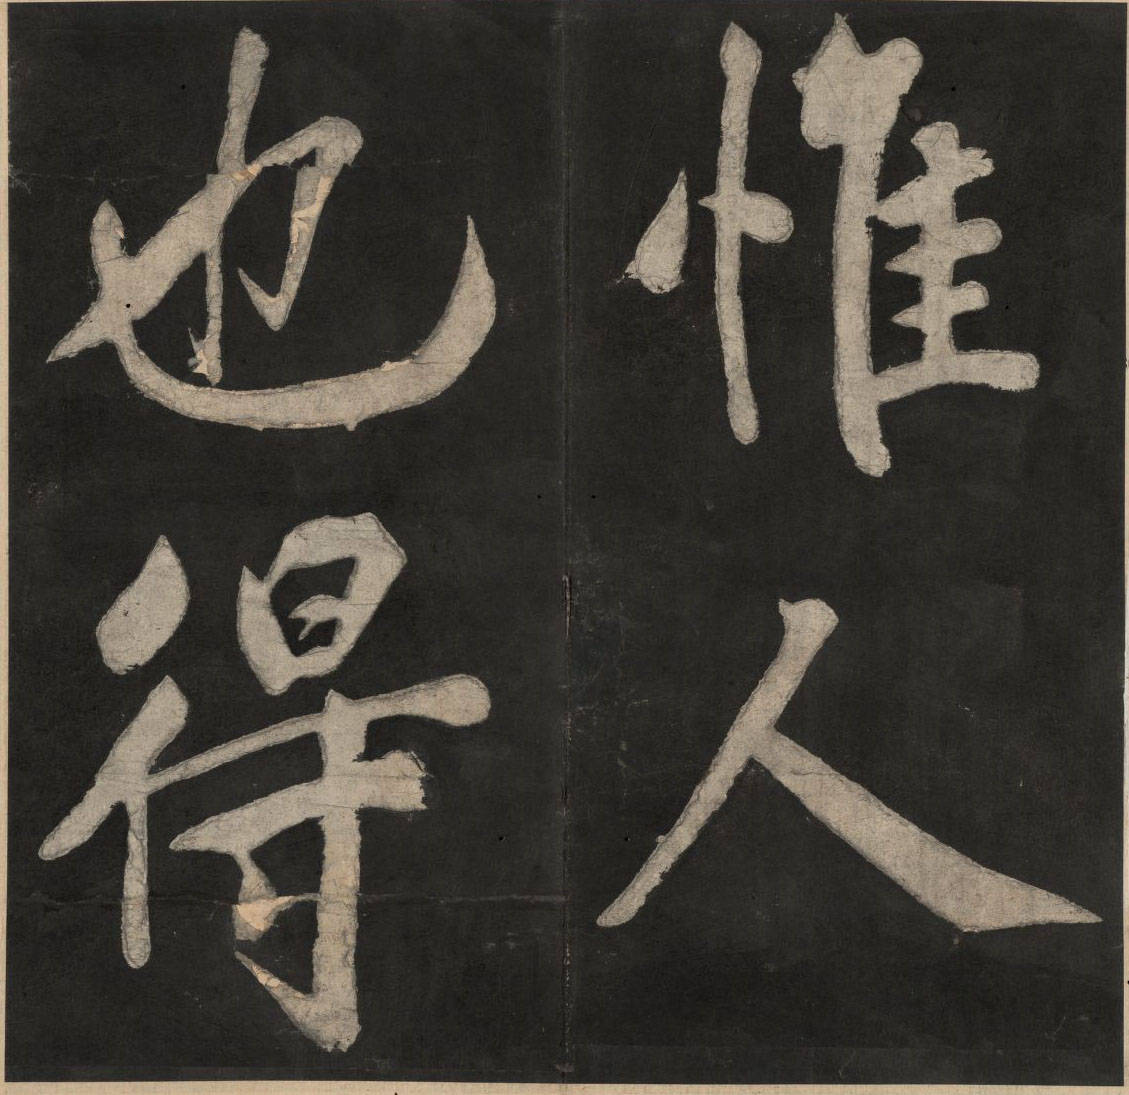 惟人
也得